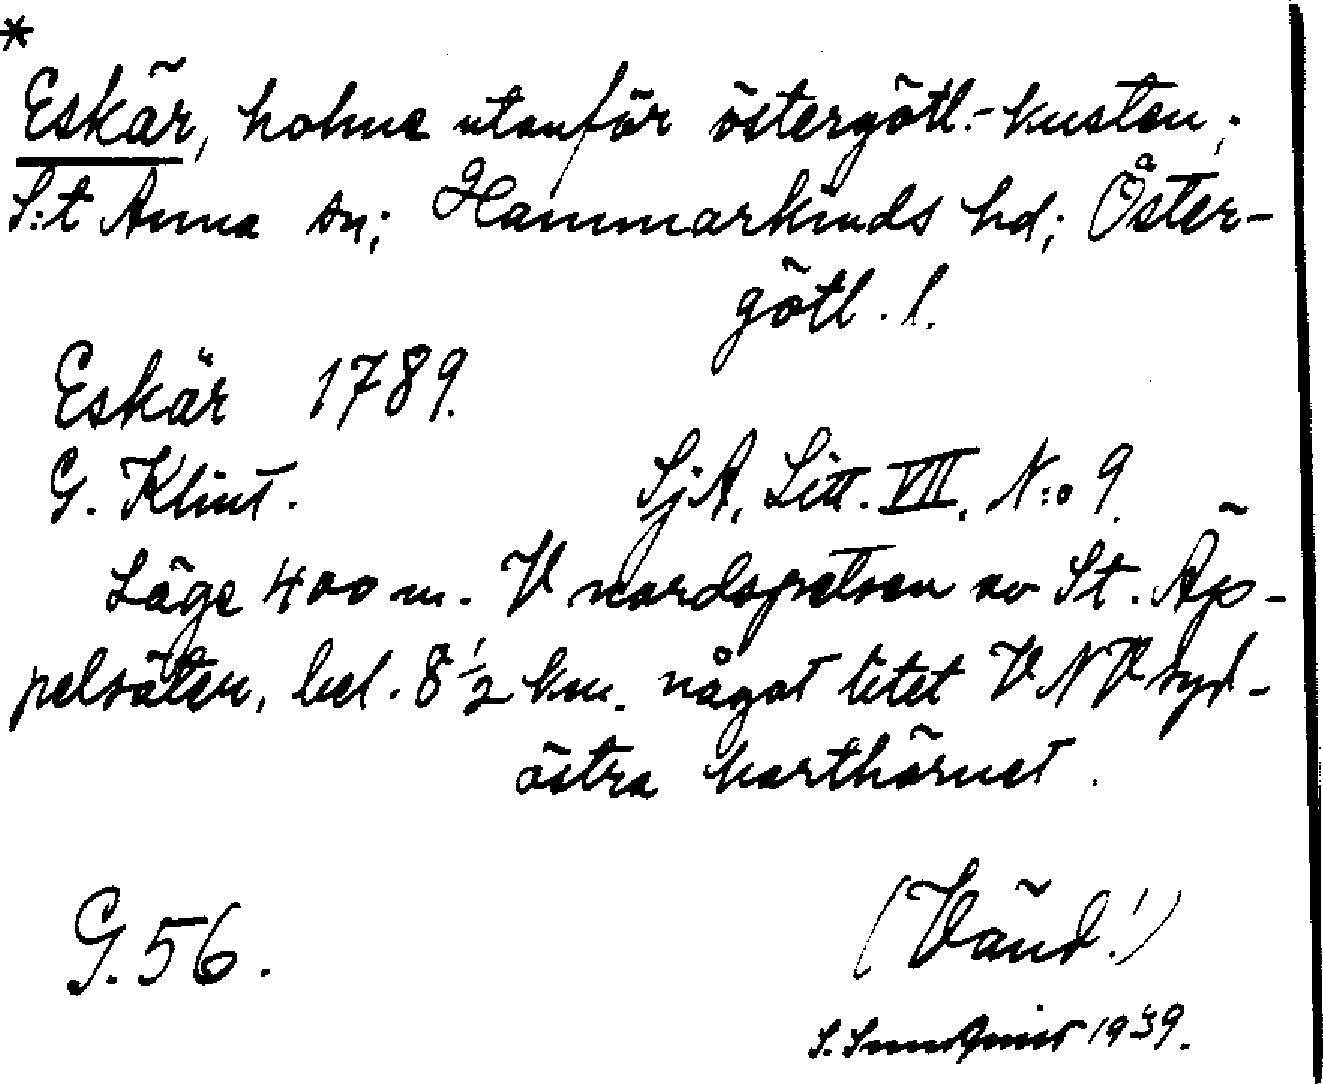 *
Eskär, holme utanför östergötl.-kusten;
S:t Anna sn; Hammarkinds hd; Öster-
götl. l.
Eskär 1789.
G. Klint. SjA, Litt. VIII, N:o 9.
Läge 400 m. V nordspetsen av St. Äp-
pelsäten, bel. 8 1/2 km. något litet VNV syd-
östra karthörnet.
G. 56. (Vänd!)
S. Sundqvist 1939.